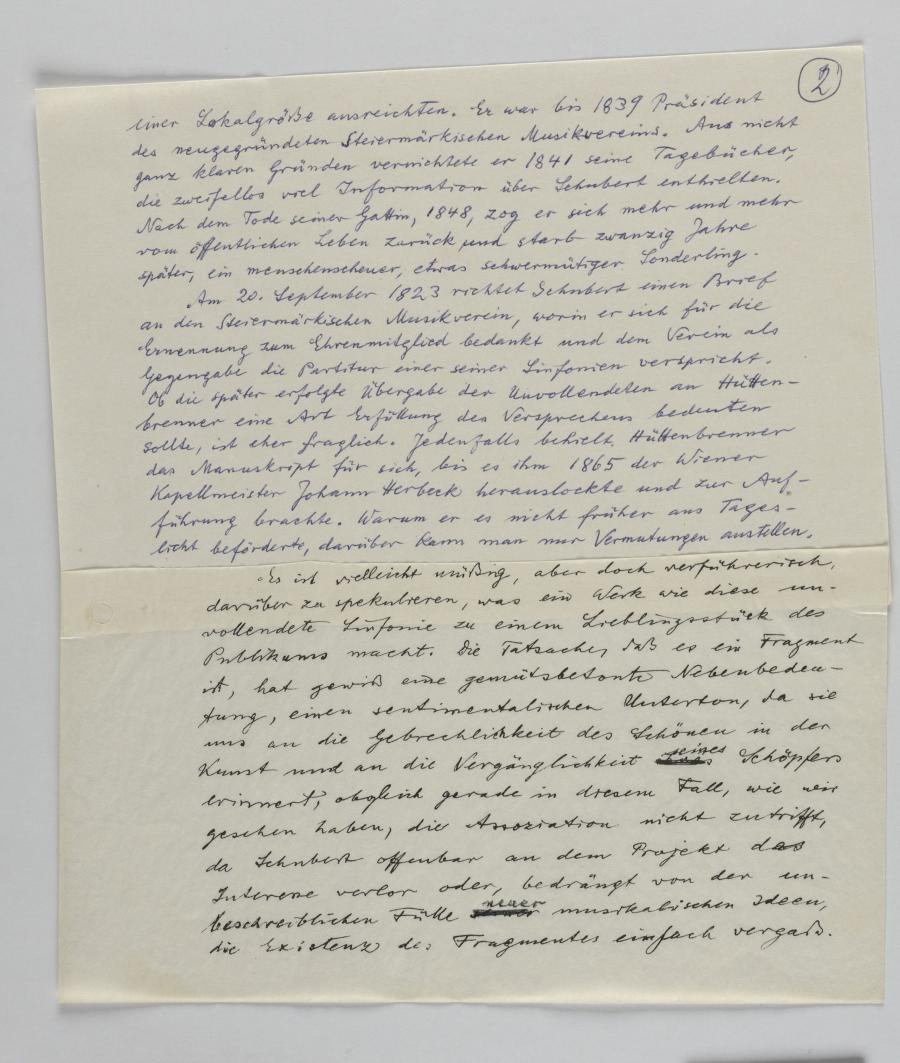 2
einer Lokalgröße ausreichten. Er war bis 1839 Präsident
des neugegründeten Steiermärkischen Musikvereins. Aus nicht
ganz klaren Gründen vernichtete er 1841 seine Tagebücher,
die zweifellos viel Information über Schubert enthielten.
Nach dem Tode seiner Gattin, 1848, zog er sich mehr und mehr
vom öffentlichen Leben zurück und starb zwanzig Jahre
später, ein menschenscheuer, etwas schwermütiger Sonderling.
Am 20. September 1823 richtet Schubert einen Brief
an den Steiermärkischen Musikverein, worin er sich für die
Ernennung zum Ehrenmitglied bedankt und dem Verein als
Gegengabe die Partitur einer seiner Sinfonien verspricht.
Ob die später erfolgte Übergabe der Unvollendeten an Hütten-
brenner eine Art Erfüllung des Versprechens bedeuten
sollte, ist eher fraglich. Jedenfalls behielt Hüttenbrenner
das Manuskript für sich, bis es ihm 1865 der Wiener
Kapellmeister Johann Herbeck herauslockte und zur Auf-
führung brachte. Warum er es nicht früher ans Tages-
licht beförderte, darüber kann man nur Vermutungen anstellen.
Es ist vielleicht müßig, aber doch verführerisch,
darüber zu spekulieren, was ein Werk wie diese un-
vollendete Sinfonie zu einem Lieblingsstück des
Publikums macht. Die Tatsache, daß es ein Fragment
ist, hat gewiß eine gemütsbetonte Nebenbedeu-
tung, einen sentimentalischen Unterton, da sie
uns an die Gebrechlichkeit des Schönen in der
Kunst und an die Vergänglichkeit seines Schöpfers
erinnert, obgleich gerade in diesem Fall, wie wir
gesehen haben, die Assoziation nicht zutrifft,
da Schubert offenbar an dem Projekt das
Interesse verlor oder, bedrängt von der un-
beschreiblichen Fülle neuer musikalischen Ideen,
die Existenz des Fragmentes einfach vergaß.